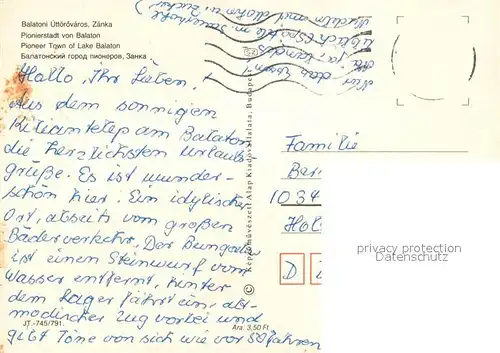 Balatoni Úttörőváros, Zánka
Pionierstadt von Balaton
Pioneer Town of Lake Balaton
Балатонский город пионеров, Занка
Hallo, Ihr Lieben,
Aus dem sonnigen
Kiliantelep am Balaton
die herzlichsten Urlaubs
grüße. Es ist wunder-
schön hier. Ein idyllischer
Ort, abseits vom großen
Bäderverkehr. Der Bungalow
ist einen Steinwurf vom
Wasser entfernt, hinter
dem Lager fährt ein alt-
modischer Zug vorbei und
gibt Töne von sich wie vor 50 Jahren
JT.-745/791.
Ára: 3,50 Ft
© Képzőművészeti Alap Kiadóvállalata, Budapest
Familie
Ber
1034
Hol
D
privacy protection
Datenschutz